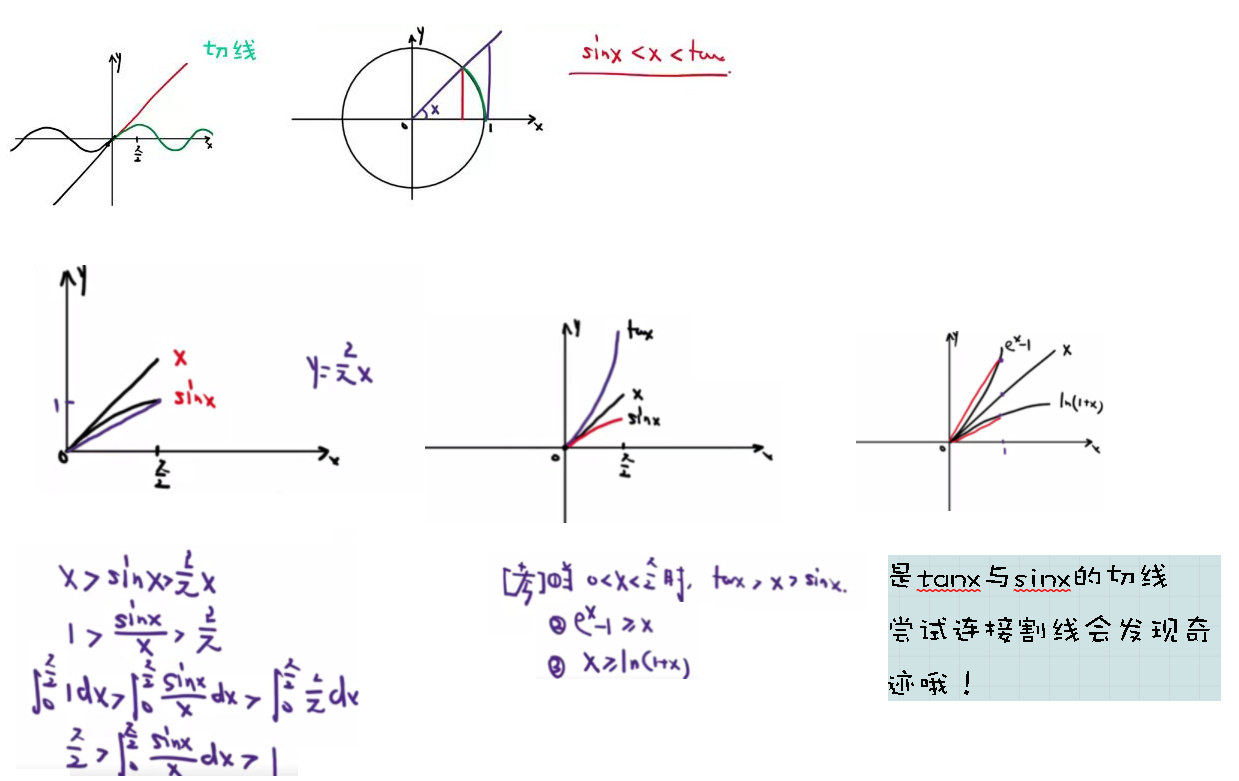 切线
y
x
π/2
y
x
0
1
x
sinx < x < tanx
y
x
sinx
1
0
π/2
x
y = 2/π x
y
tanx
x
sinx
0
π/2
x
y
eˣ-1
x
ln(1+x)
0
1
x
x > sinx > 2/π x
1 > sinx/x > 2/π
∫₀^(π/2) 1dx > ∫₀^(π/2) sinx/x dx > ∫₀^(π/2) 2/π dx
π/2 > ∫₀^(π/2) sinx/x dx > 1
0<x<π/2时, tanx > x > sinx.
② eˣ-1 ≥ x
③ x ≥ ln(1+x)
是tanx与sinx的切线
尝试连接割线会发现奇
迹哦！